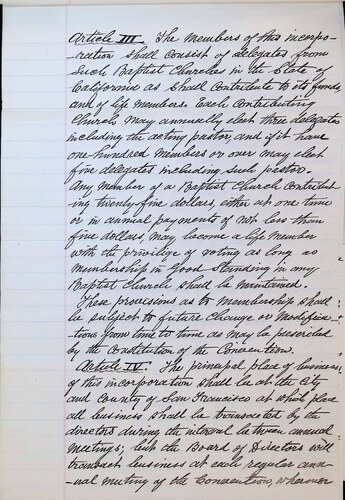 Article III. The members of this incorpo-
-ration shall consist of delegates from
such Baptist Churches in the State of
California as shall contribute to its funds,
and of life members. Each contributing
Church may annually elect three delegates
including the acting pastor, and if it have
one hundred members or over may elect
five delegates including such pastor.
Any member of a Baptist Church contribut-
ing twenty-five dollars, either at one time
or in annual payments of not less than
five dollars, may become a life member
with the privilege of voting as long as
membership in good standing in any
Baptist Church shall be maintained.
These provisions as to membership shall
be subject to future change or modifica-
-tions from time to time as may be prescribed
by the Constitution of the Convention.
Article IV. The principal place of business
of this incorporation shall be at the City
and County of San Francisco at which place
all business shall be transacted by the
directors during the interval between annual
meetings; but the Board of Directors will
transact business at each regular ann-
-ual meeting of the Convention, wherever